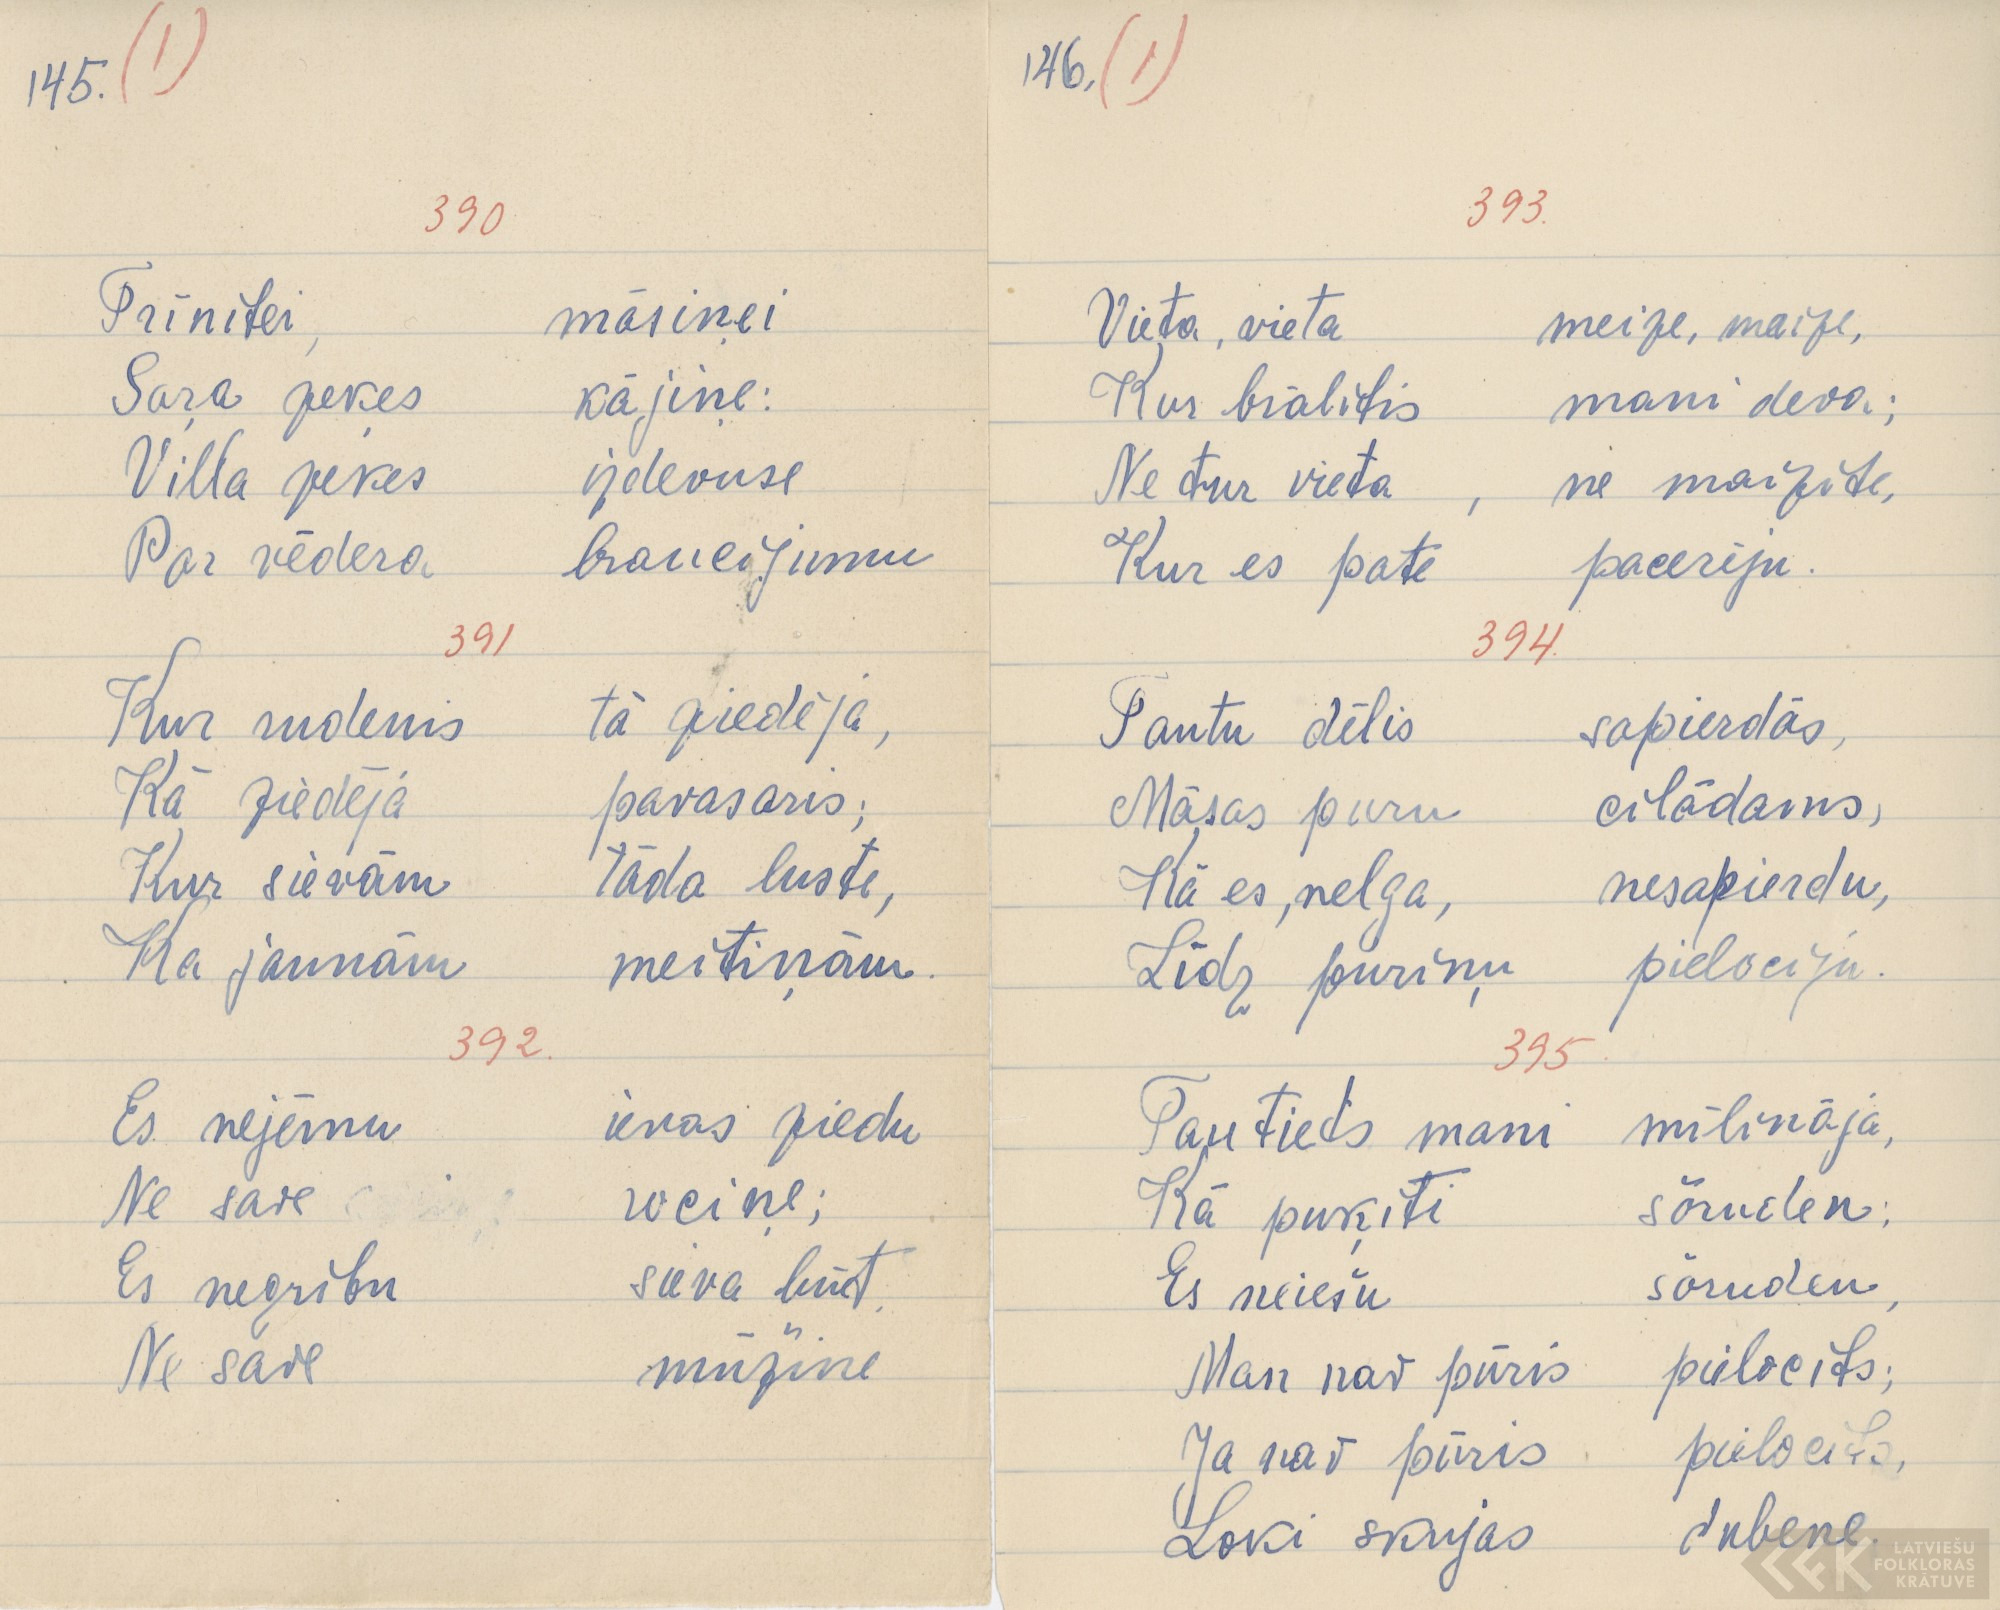 145. (1)
390
Trīnitei, māsiņei
Saŗa zeķes kājiņe:
Villa zeķes izdevuse
Par vēdera braucījumu
391
Kur rudenis tā ziedēja,
Kā ziedēja pavasaris;
Kur sievām tāda luste,
Ka jaunām meitiņām.
392.
Es nejēmu ievas ziedu
Ne save rociņe;
Es negribu sieva būt,
Ne save mūžine
146. (1)
393.
Vieta, vieta meize, maize,
Kur brālitis mani deva;
Ne tur vieta, ne maizite,
Kur es pate pacerēju.
394.
Tautu dēlis sapierdās,
Māsas puru cilādams,
Kā es, nelga, nesapierdu,
Līdz puriņu pielociju.
395
Tautiets mani mīlināja,
Kā puķiti šōruden;
Es neiešu šōruden,
Man nav pūris pielocits;
Ja nav pūris pielocits,
Loki skujas dubene.
LATVIEŠU
FOLKLORAS
KRĀTUVE